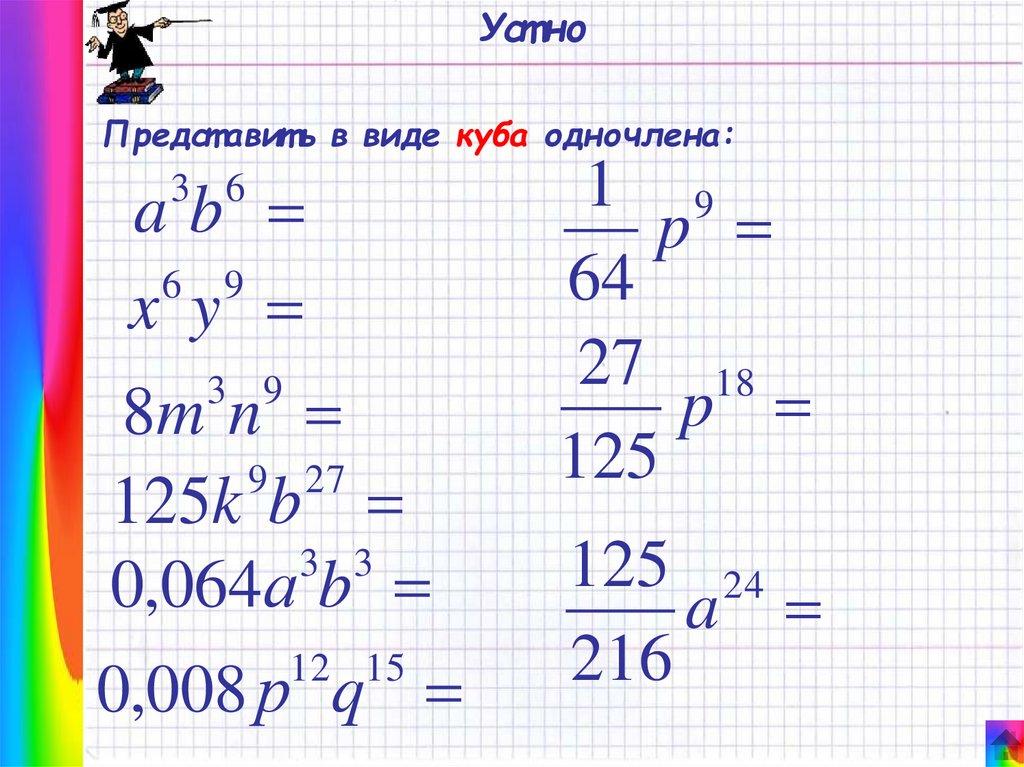 Устно
Представить в виде куба одночлена:
a³b⁶ =
x⁶y⁹ =
8m³n⁹ =
125k⁹b²⁷ =
0,064a³b³ =
0,008p¹²q¹⁵ =
1/64 p⁹ =
27/125 p¹⁸ =
125/216 a²⁴ =